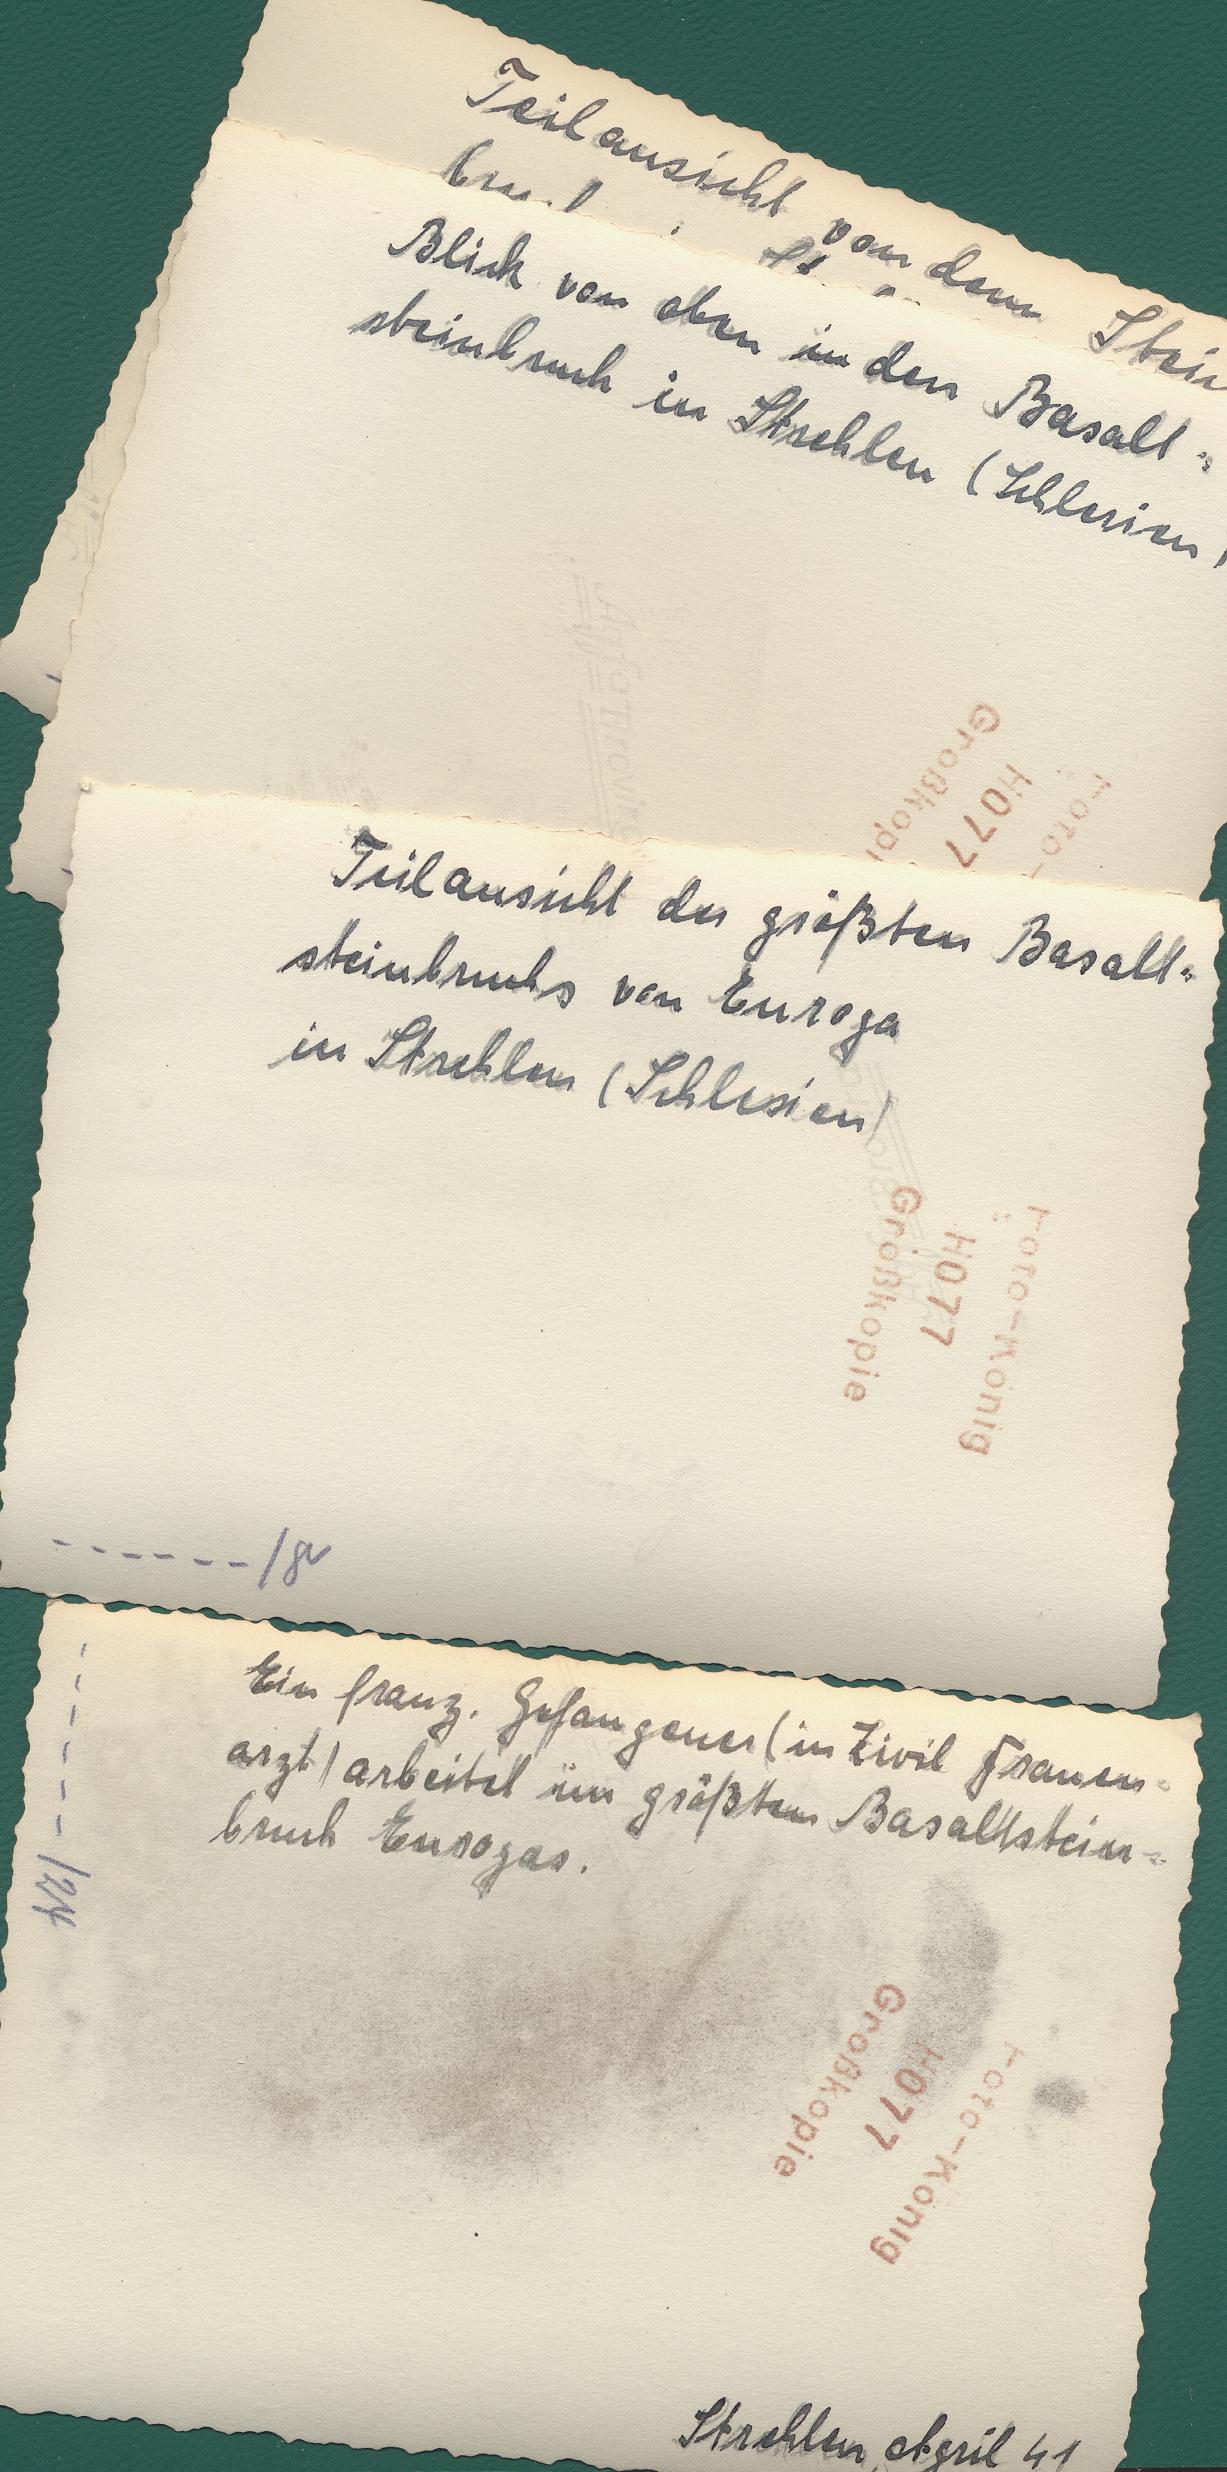 Teilansicht von dem Stein
bruch in St
Blick von oben in den Basalt-
steinbruch in Strehlen (Schlesien)
Agfa Brovira
Großkopi
H077
Foto-
Teilansicht des größten Basalt-
steinbruchs von Europa
in Strehlen (Schlesien)
Großkopie
H077
Foto-König
------/8
Ein franz. Gefangener (in Zivil Frauen-
arzt) arbeitet im größten Basaltstein-
bruch Europas.
------/24
Großkopie
H077
Foto-König
Strehlen, April 41